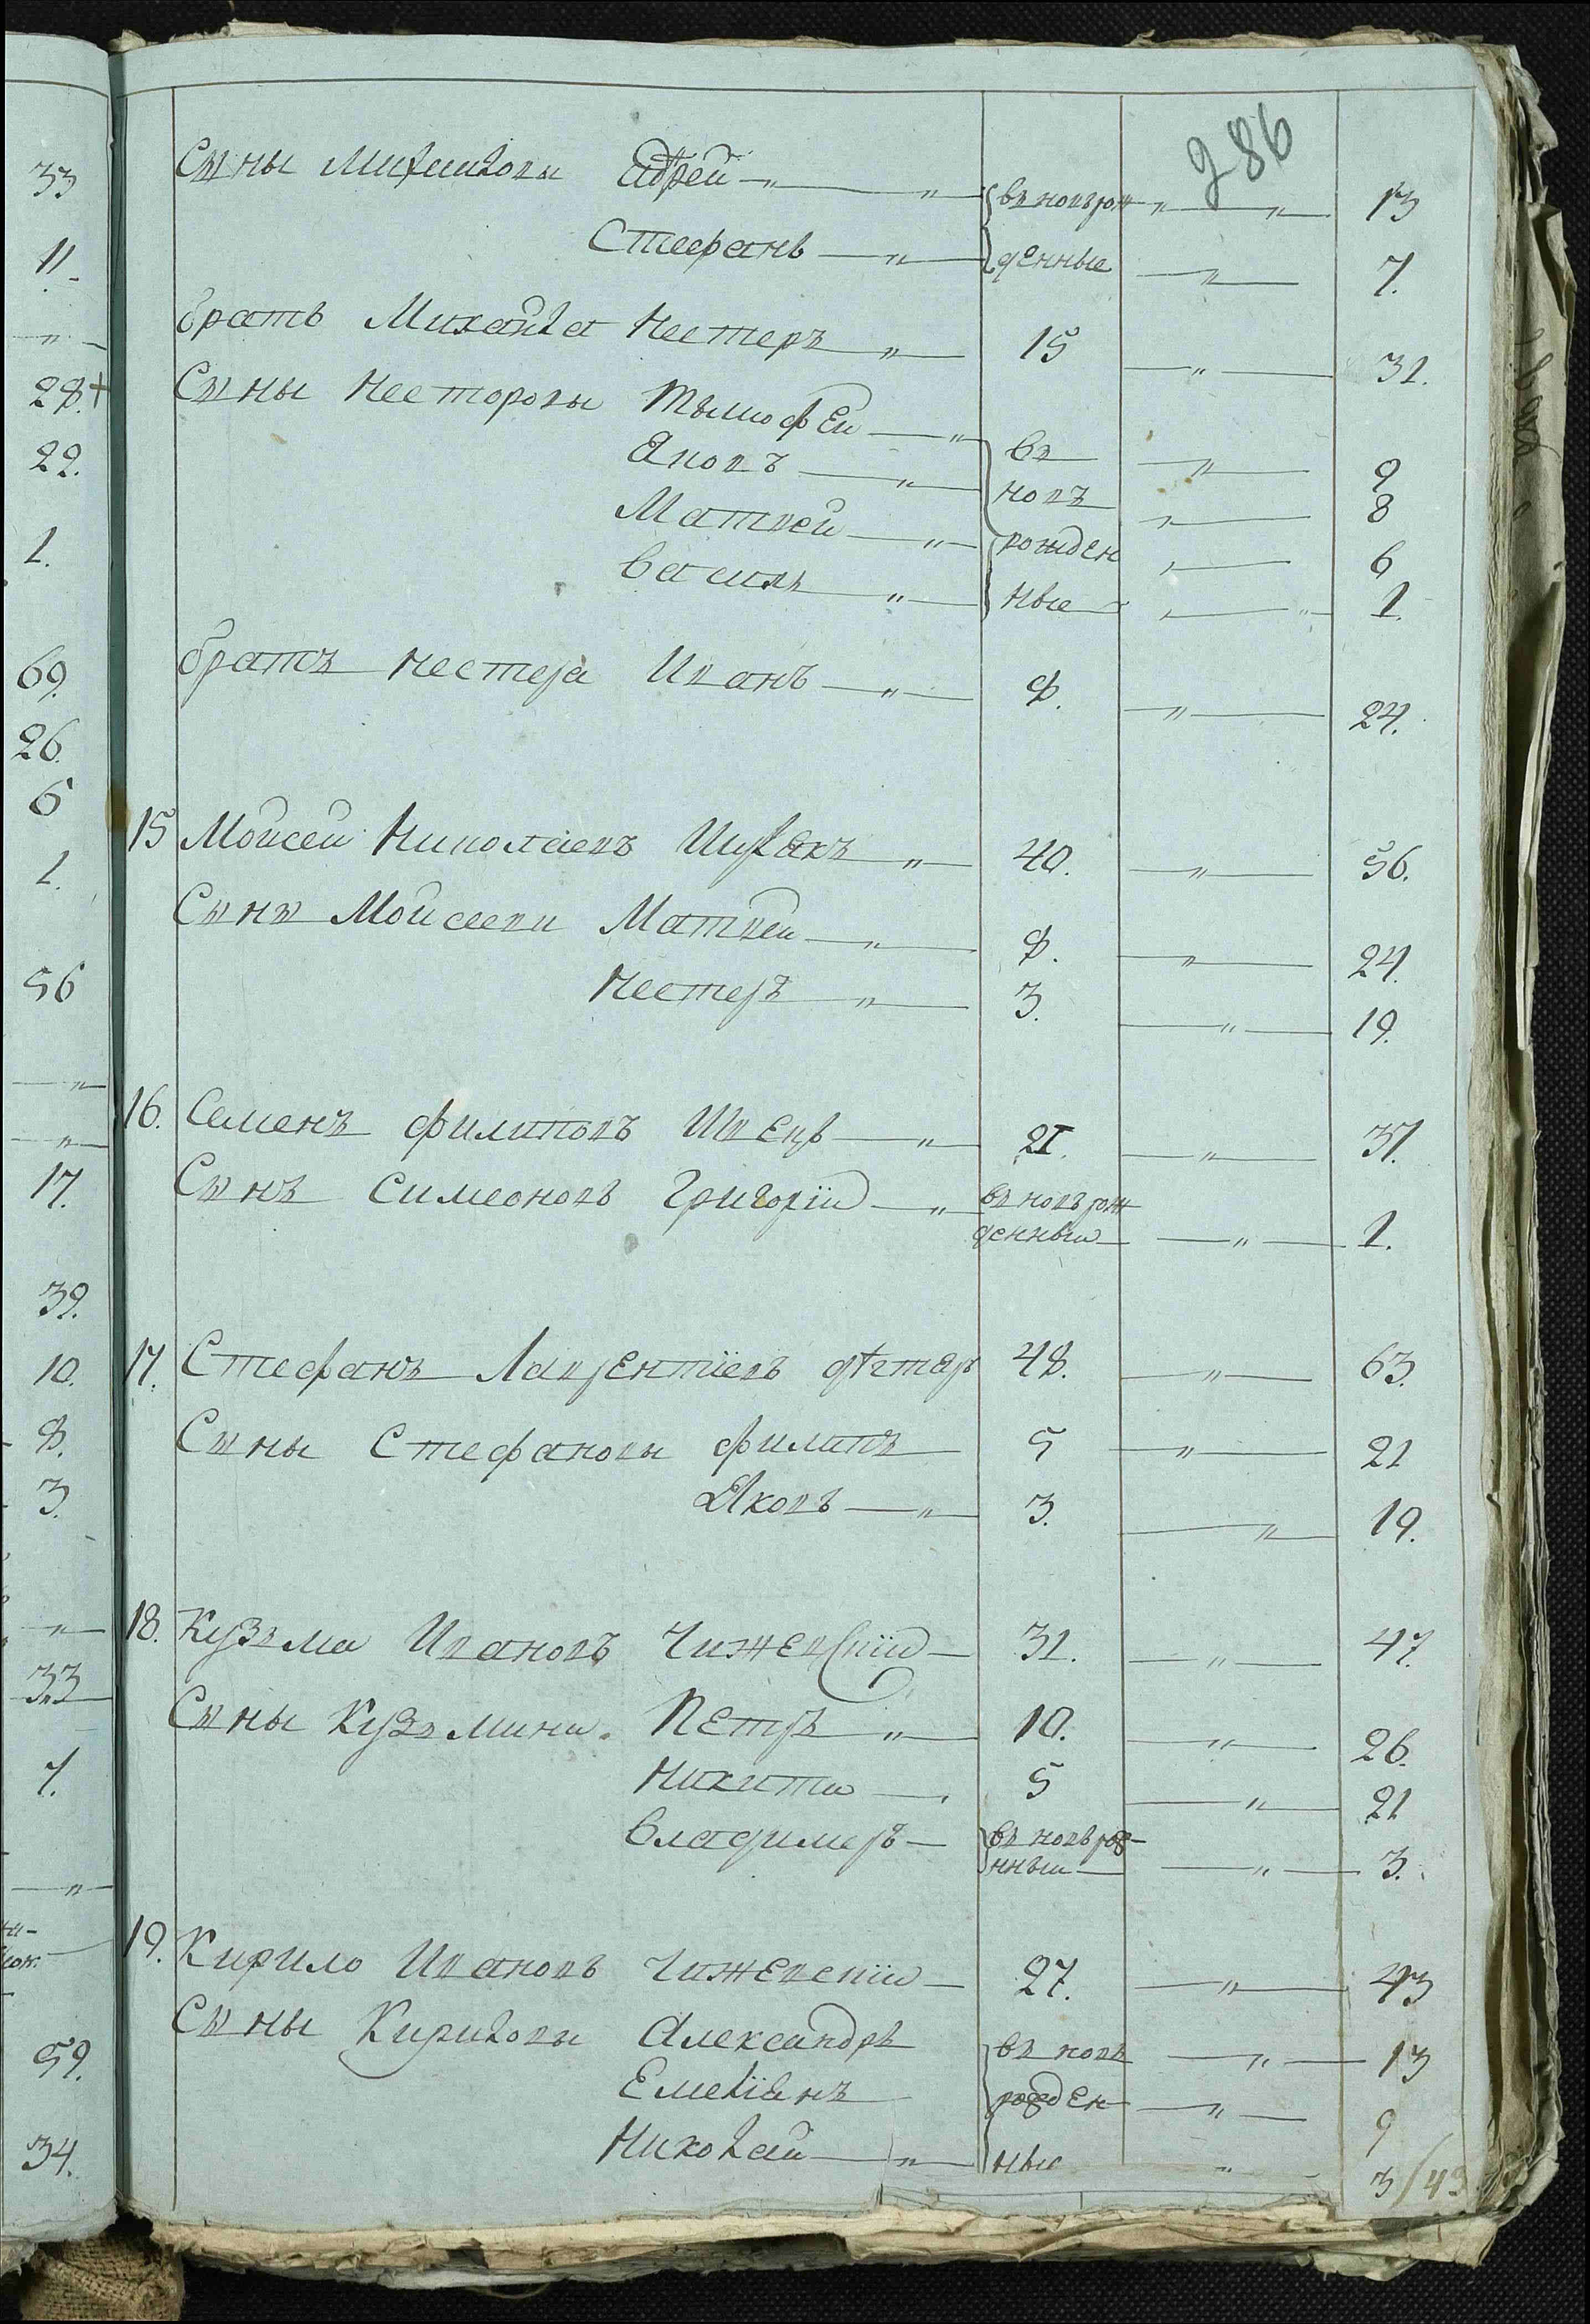 286
Сыны Михайловы Андрей — " — " {вновьрож — " — " — 13
Стефанъ — " — {денные — " — 7.
братъ Михайла Нестеръ — " — 15 — " — 31.
Сыны Несторовы Тымофей — " — въ — " — 9
Яковъ — " — новъ — " — 8
Матвей — " — рожден — " — 6
Василь — " — ные — " — 1.
братъ Нестера Иванъ — " — 8. — " — 24.
15 Мойсей Николаевъ — " — 40. — " — 56.
Сынъ Мойсееви Матвей — " — 8. — " — 24.
Нестеръ — " — 3. — " — 19.
16. Семенъ Филиповъ Швецъ — " — 21. — " — 37.
Сынъ Симеоновъ Григорій — " — вновьрож
денный — " — 1.
17. Стефанъ Лаврентіевъ 48. — " — 63.
Сыны Стефановы Филипъ — 5 — " — 21
Яковъ — " — 3. — " — 19.
18. Кузьма Ивановъ Чижевскій — 31. — " — 47.
Сыны Кузьмини. Петръ — " — 10. — " — 26.
Никита — 5 — " — 21
Владимеръ — вновьрож
нный — " — 3.
19. Кирило Ивановъ Чижевскій — 27. — " — 43
Сыны Кириловы Александръ {вновь — " — 13
Емеліянъ рожден — " — 9
Николай — " — ные " — 3/43
33
11.
"
28.+
22.
1.
69.
26.
6
1.
56
"
"
17.
39.
10.
8.
3.
"
33
7.
"
59.
34.